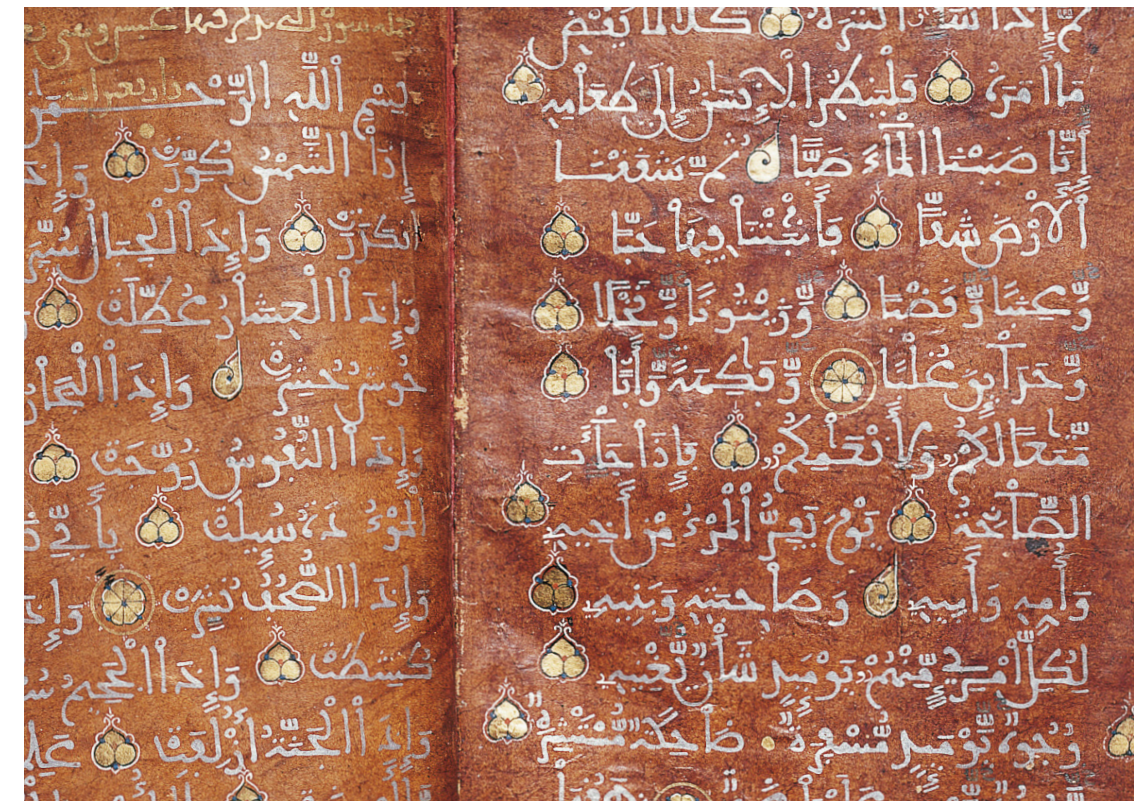 ثُمَّ إِذَا شَآءَ انشَرَهُ كَلَّا لَمَّا يَقْضِ
مَآ أَمَرَهُ فَلْيَنظُرِ الْإِنسَٰنُ إِلَىٰ طَعَامِهِ
أَنَّا صَبَبْنَا الْمَآءَ صَبًّا ثُمَّ شَقَقْنَا
الْأَرْضَ شَقًّا فَأَنبَتْنَا فِيهَا حَبًّا
وَعِنَبًا وَقَضْبًا وَزَيْتُونًا وَنَخْلًا
وَحَدَآئِقَ غُلْبًا وَفَٰكِهَةً وَأَبًّا
مَّتَٰعًا لَّكُمْ وَلِأَنْعَٰمِكُمْ فَإِذَا جَآءَتِ
الصَّآخَّةُ يَوْمَ يَفِرُّ الْمَرْءُ مِنْ أَخِيهِ
وَأُمِّهِ وَأَبِيهِ وَصَٰحِبَتِهِ وَبَنِيهِ
لِكُلِّ امْرِئٍ مِّنْهُمْ يَوْمَئِذٍ شَأْنٌ يُغْنِيهِ
وُجُوهٌ يَوْمَئِذٍ مُّسْفِرَةٌ ضَاحِكَةٌ مُّسْتَبْشِرَةٌ
بِسْمِ اللَّهِ الرَّحْمَٰنِ
إِذَا الشَّمْسُ كُوِّرَتْ وَإِذَا
انكَدَرَتْ وَإِذَا الْجِبَالُ سُيِّرَتْ
وَإِذَا الْعِشَارُ عُطِّلَتْ
حُوشُ حُشِرَتْ وَإِذَا الْبِحَارُ
وَإِذَا النُّفُوسُ زُوِّجَتْ
الْمَوْءُدَةُ سُئِلَتْ بِأَيِّ
وَإِذَا الصُّحُفُ نُشِرَتْ وَإِذَا
كُشِطَتْ وَإِذَا الْجَحِيمُ
وَإِذَا الْجَنَّةُ أُزْلِفَتْ